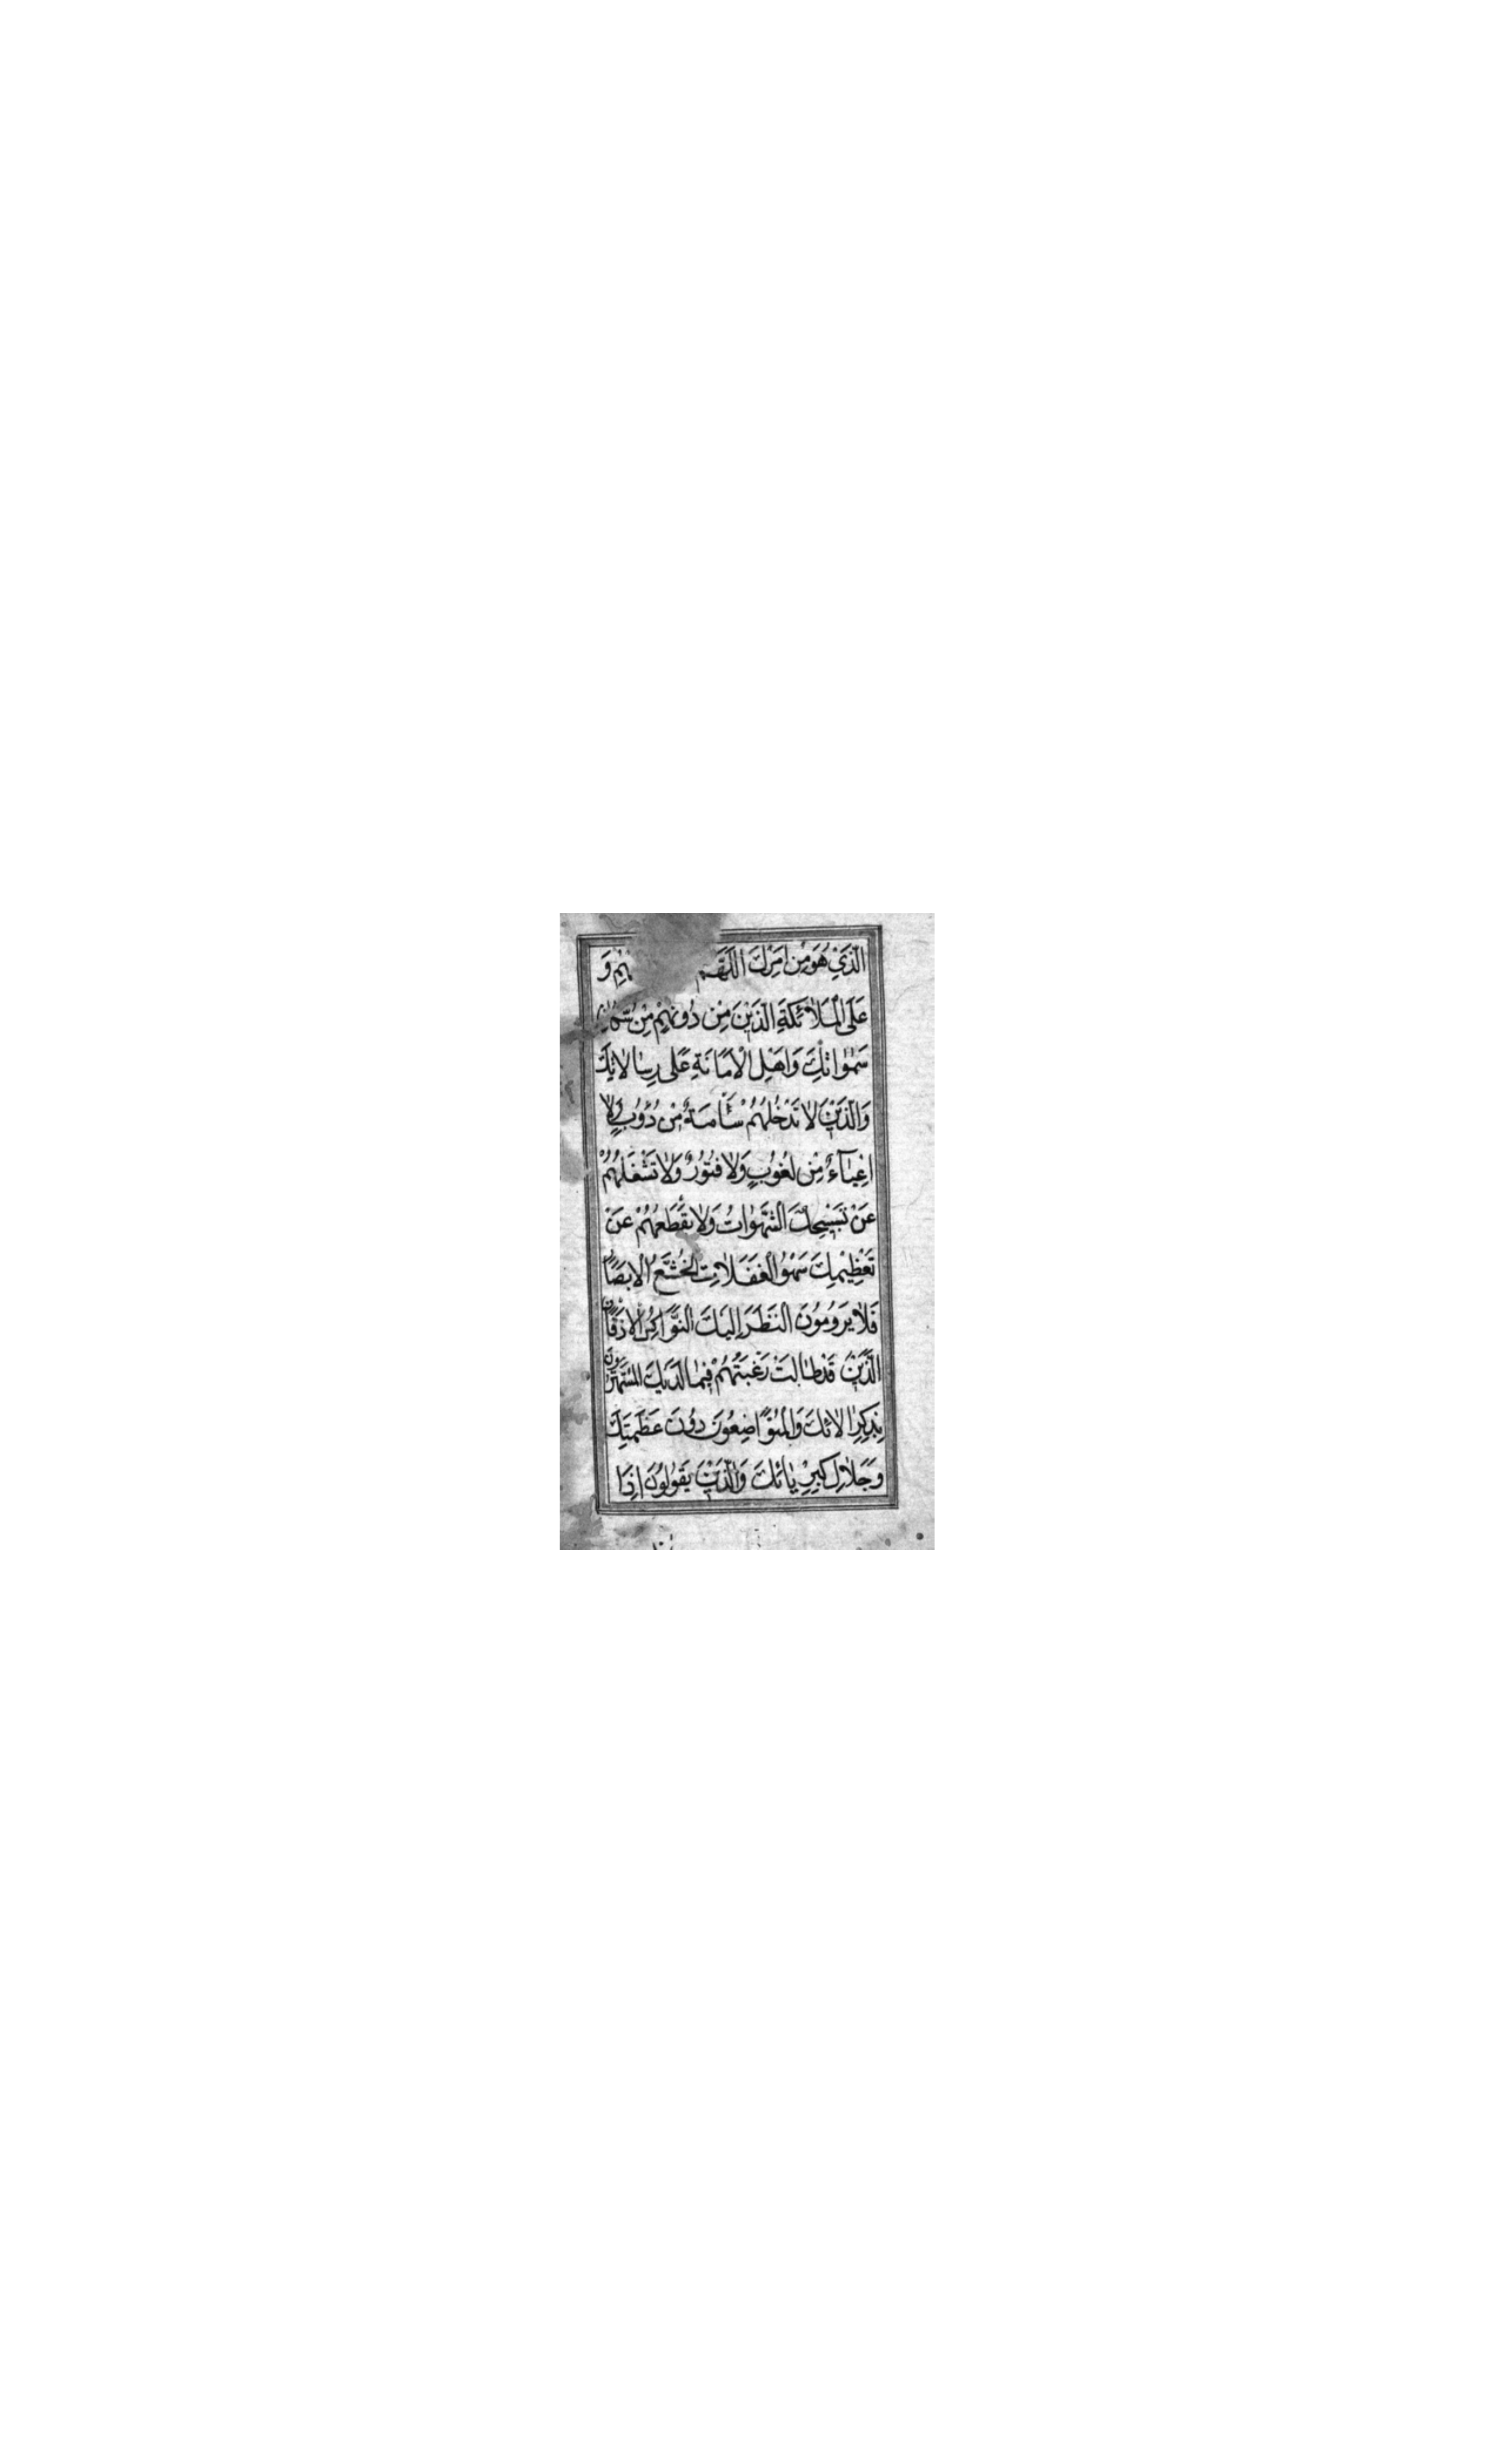 الَّذِي هُوَ مِنْ اَمْرِكَ اللَّهُمَّ وَ
عَلَى الْمَلٰائِكَةِ الَّذِينَ مِنْ دُونِهِمْ مِنْ سُكّٰانِ
سَمٰوٰاتِكَ وَاَهْلِ الْاَمٰانَةِ عَلٰى رِسٰالاٰتِكَ
وَالَّذِينَ لاٰ تَدْخُلُهُمْ سَاْمَةٌ مِنْ دُؤُبٍ وَلاٰ
اِعْيٰاۤءٌ مِنْ لُغُوبٍ وَلاٰ فُتُورٌ وَلاٰ تَشْغَلُهُمْ
عَنْ تَسْبِيحِكَ الشَّهَوٰاتُ وَلاٰ يَقْطَعُهُمْ عَنْ
تَعْظِيمِكَ سَهْوُ الْغَفَلاٰتِ الْخُشَّعُ الْاَبْصٰارِ
فَلاٰ يَرُومُونَ النَّظَرَ اِلَيْكَ النَّوٰاكِسُ الْاَذْقٰانِ
الَّذِينَ قَدْ طٰالَتْ رَغْبَتُهُمْ فِيمٰا لَدَيْكَ الْمُسْتَهْتَرُونَ
بِذِكْرِ اٰلاٰئِكَ وَالْمُتَوٰاضِعُونَ دُونَ عَظَمَتِكَ
وَجَلاٰلِ كِبْرِيٰائِكَ وَالَّذِينَ يَقُولُونَ اِذٰا